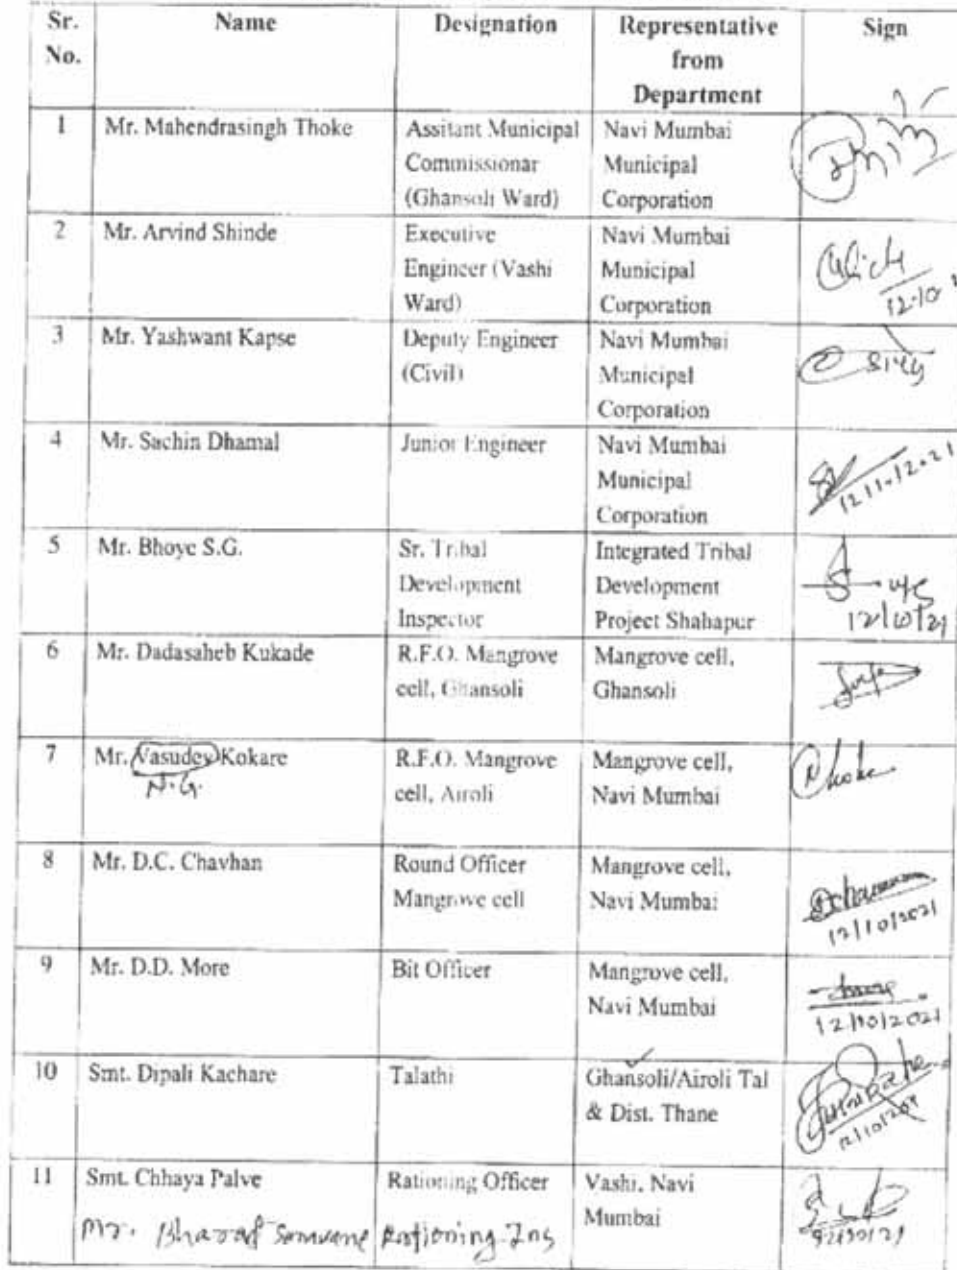 Sr. No. Name Designation Representative from Department Sign
1 Mr. Mahendrasingh Thoke Assitant Municipal Commissionar (Ghansoli Ward) Navi Mumbai Municipal Corporation
2 Mr. Arvind Shinde Executive Engineer (Vashi Ward) Navi Mumbai Municipal Corporation
12.10
3 Mr. Yashwant Kapse Deputy Engineer (Civil) Navi Mumbai Municipal Corporation
4 Mr. Sachin Dhamal Junior Engineer Navi Mumbai Municipal Corporation
5 Mr. Bhoye S.G. Sr. Tribal Development Inspector Integrated Tribal Development Project Shahapur
12/10/21
6 Mr. Dadasaheb Kukade R.F.O. Mangrove cell, Ghansoli Mangrove cell, Ghansoli
7 Mr. Vasudev Kokare R.F.O. Mangrove cell, Airoli Mangrove cell, Navi Mumbai
N.G.
8 Mr. D.C. Chavhan Round Officer Mangrove cell Mangrove cell, Navi Mumbai
12/10/2021
9 Mr. D.D. More Bit Officer Mangrove cell, Navi Mumbai
12/10/2021
10 Smt. Dipali Kachare Talathi Ghansoli/Airoli Tal & Dist. Thane
11 Smt. Chhaya Palve Rationing Officer Vashi, Navi Mumbai
Mr. Bharat Rationing Ins